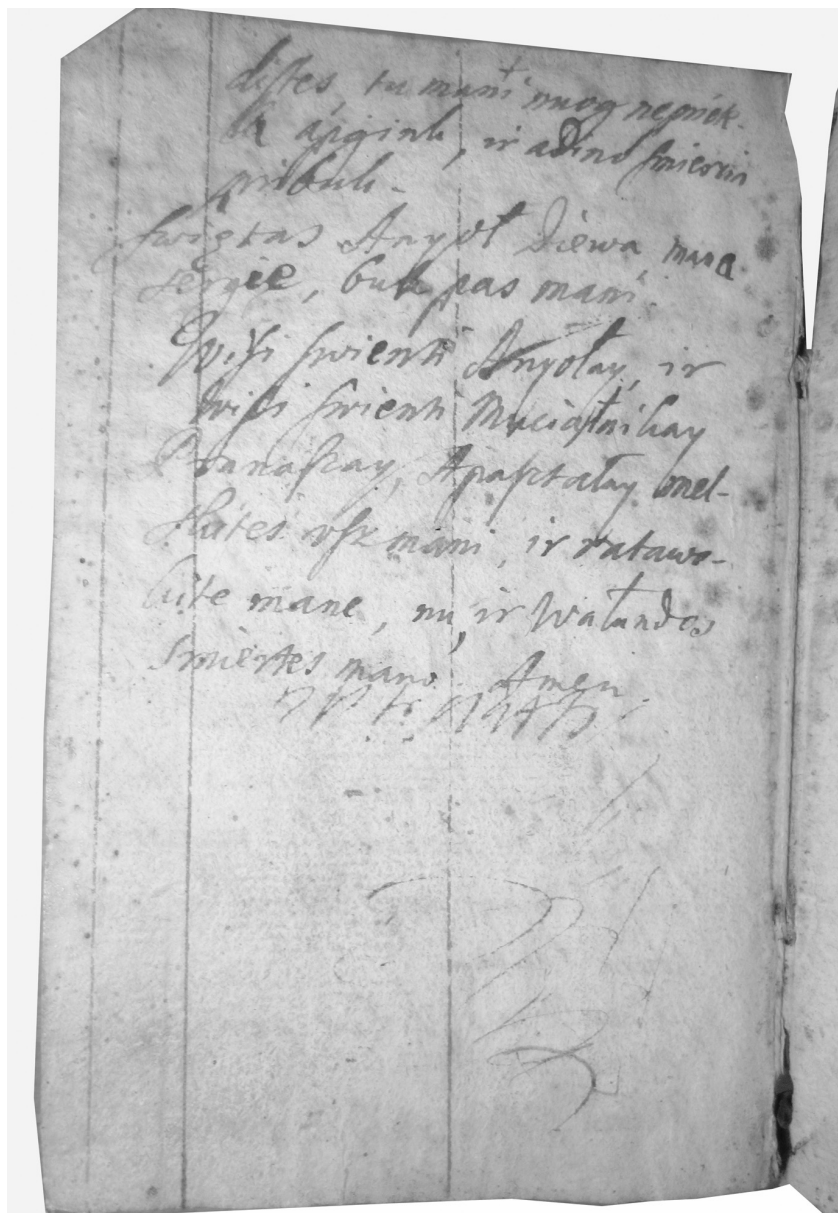 distes, tu mani nuog nepriet-
la apgink, ir adino smierciu
pribuk.
Swiętas Anyoł Diewa, mana
sergie, buk pas mani.
Wisi swienti Anyołay, ir
wisi swienti Mucialnikay
Pranaszay, Apaształay mel-
skites usz mani, ir ratawo-
kite mane, nu, ir Wałandos
smiertes mano. Amen.